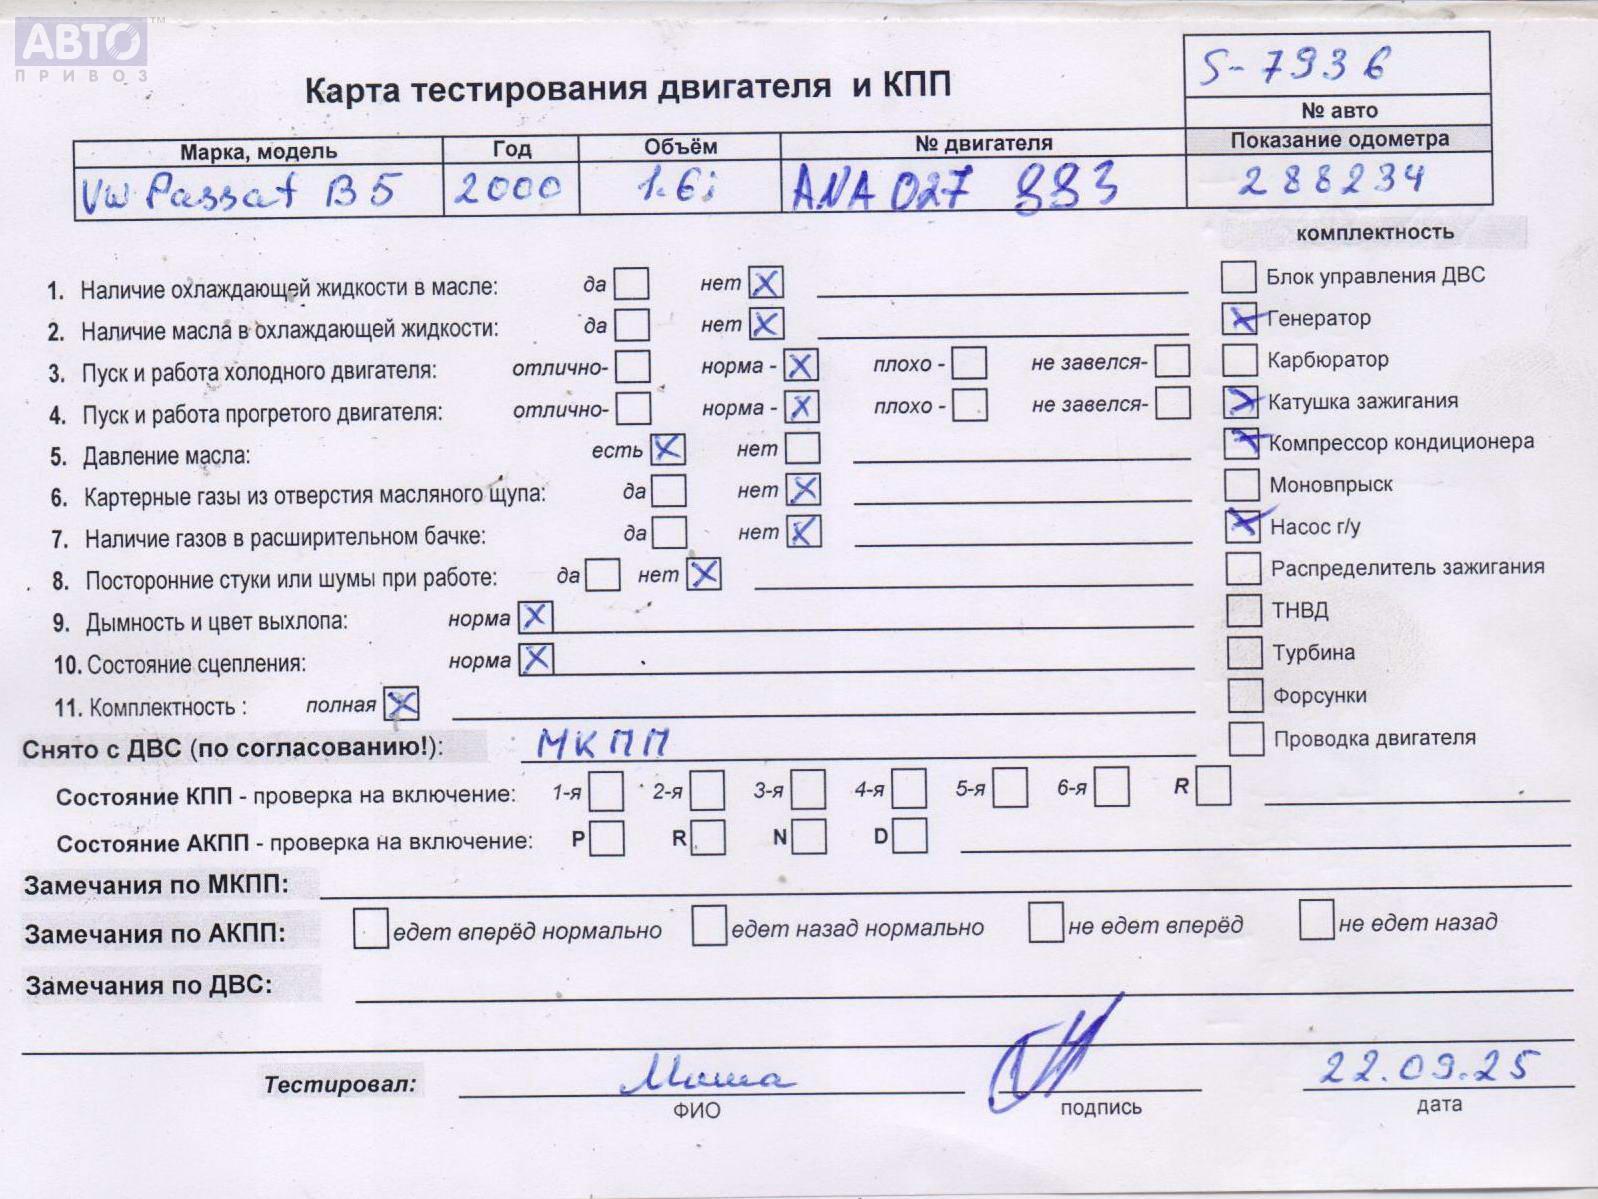 АВТО™
ПРИВОЗ
S-7936
Карта тестирования двигателя и КПП
№ авто
Марка, модель Год Объём № двигателя Показание одометра
VW Passat B5 2000 1.6i ANA 027 993 288234
комплектность
1. Наличие охлаждающей жидкости в масле: да нет X Блок управления ДВС
2. Наличие масла в охлаждающей жидкости: да нет X X Генератор
3. Пуск и работа холодного двигателя: отлично- норма - X плохо - не завелся- Карбюратор
4. Пуск и работа прогретого двигателя: отлично- норма - X плохо - не завелся- X Катушка зажигания
5. Давление масла: есть X нет X Компрессор кондиционера
6. Картерные газы из отверстия масляного щупа: да нет X Моновпрыск
7. Наличие газов в расширительном бачке: да нет X X Насос г/у
8. Посторонние стуки или шумы при работе: да нет X Распределитель зажигания
9. Дымность и цвет выхлопа: норма X ТНВД
10. Состояние сцепления: норма X Турбина
11. Комплектность : полная X Форсунки
Снято с ДВС (по согласованию!): МКПП Проводка двигателя
Состояние КПП - проверка на включение: 1-я 2-я 3-я 4-я 5-я 6-я R
Состояние АКПП - проверка на включение: P R N D
Замечания по МКПП:
Замечания по АКПП: едет вперёд нормально едет назад нормально не едет вперёд не едет назад
Замечания по ДВС:
Тестировал: Миша 22.09.25
ФИО подпись дата